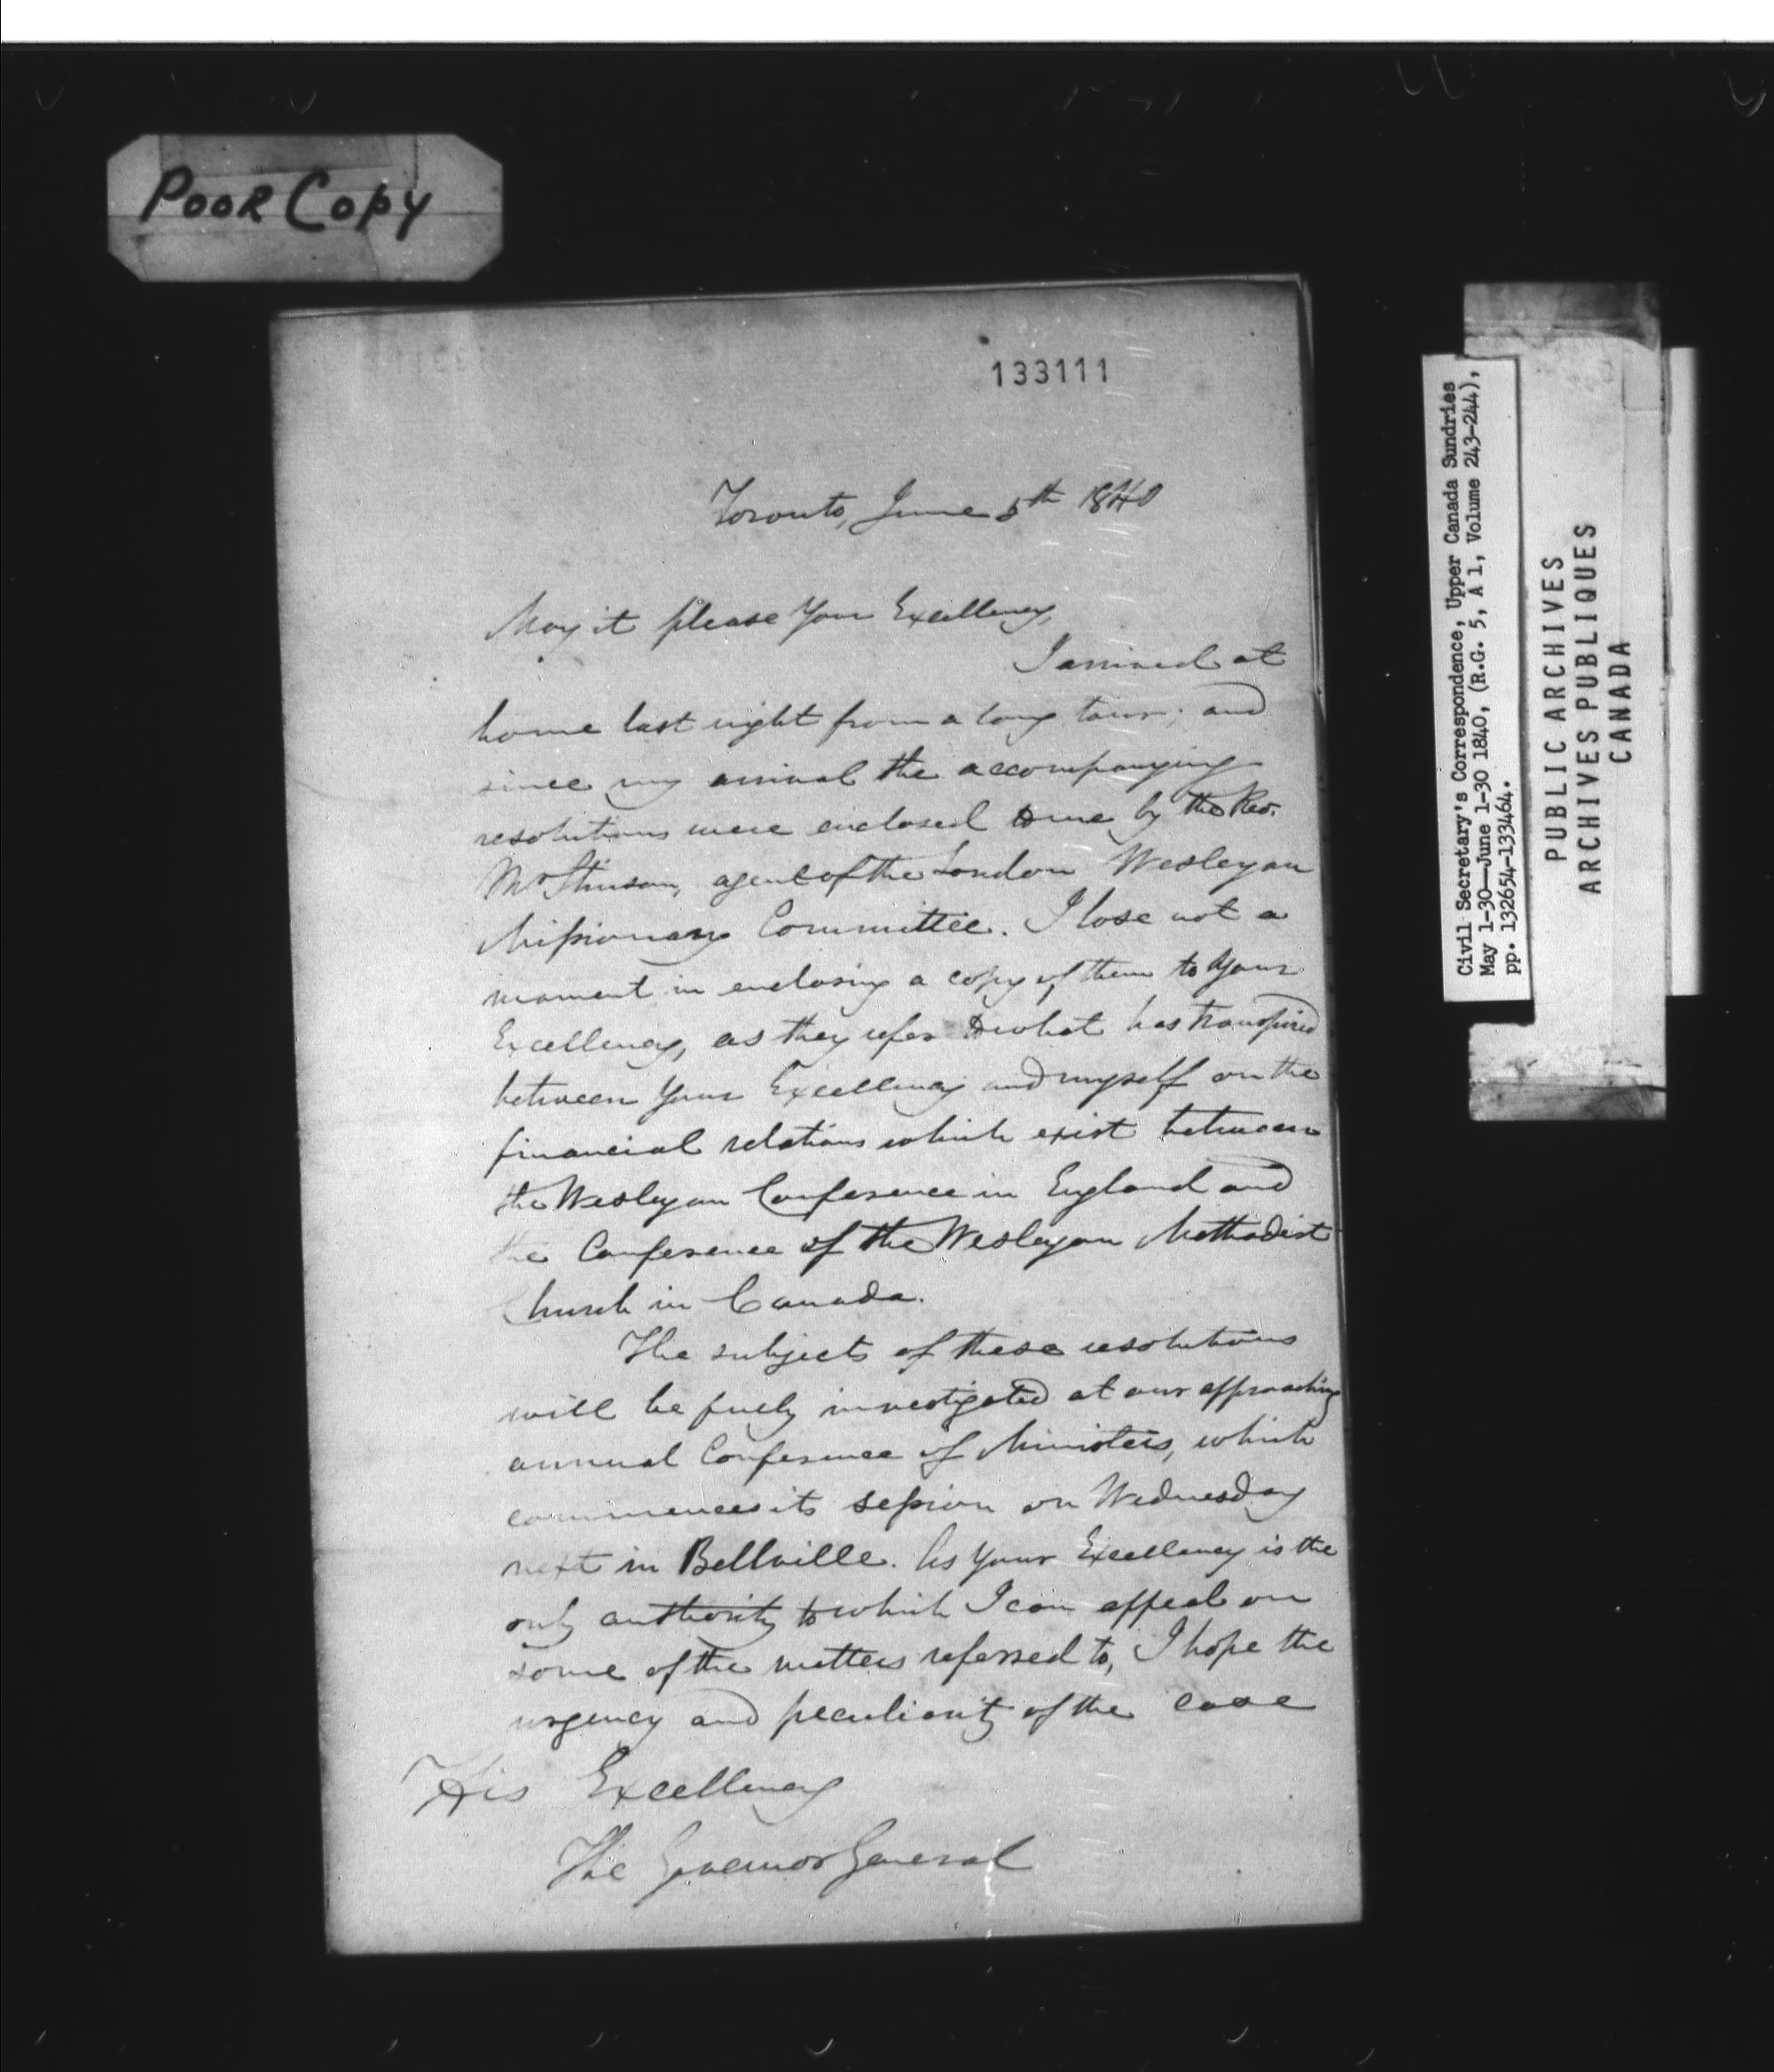 POOR COPY
133111
Toronto, June 5th 1840
May it please Your Excellency,
I arrived at
home last night from a long tour; and
since my arrival the accompanying
resolutions were enclosed to me by the Rev.
Mr Stinson, agent of the London Wesleyan
Missionary Committee. I lose not a
moment in enclosing a copy of them to Your
Excellency, as they refer to what has transpired
between Your Excellency and myself on the
financial relations which exist between
the Wesleyan Conference in England and
the Conference of the Wesleyan Methodist
Church in Canada.
The subjects of these resolutions
will be fully investigated at our approaching
annual Conference of Ministers, which
commences its session on Wednesday
next in Bellville. As Your Excellency is the
only authority to which I can appeal on
some of the matters referred to, I hope the
urgency and peculiarity of the case
His Excellency
The Governor General
Civil Secretary's Correspondence, Upper Canada Sundries
May 1-30—June 1-30 1840, (R.G. 5, A 1, Volume 243-244),
pp. 132654-133464.
PUBLIC ARCHIVES
ARCHIVES PUBLIQUES
CANADA